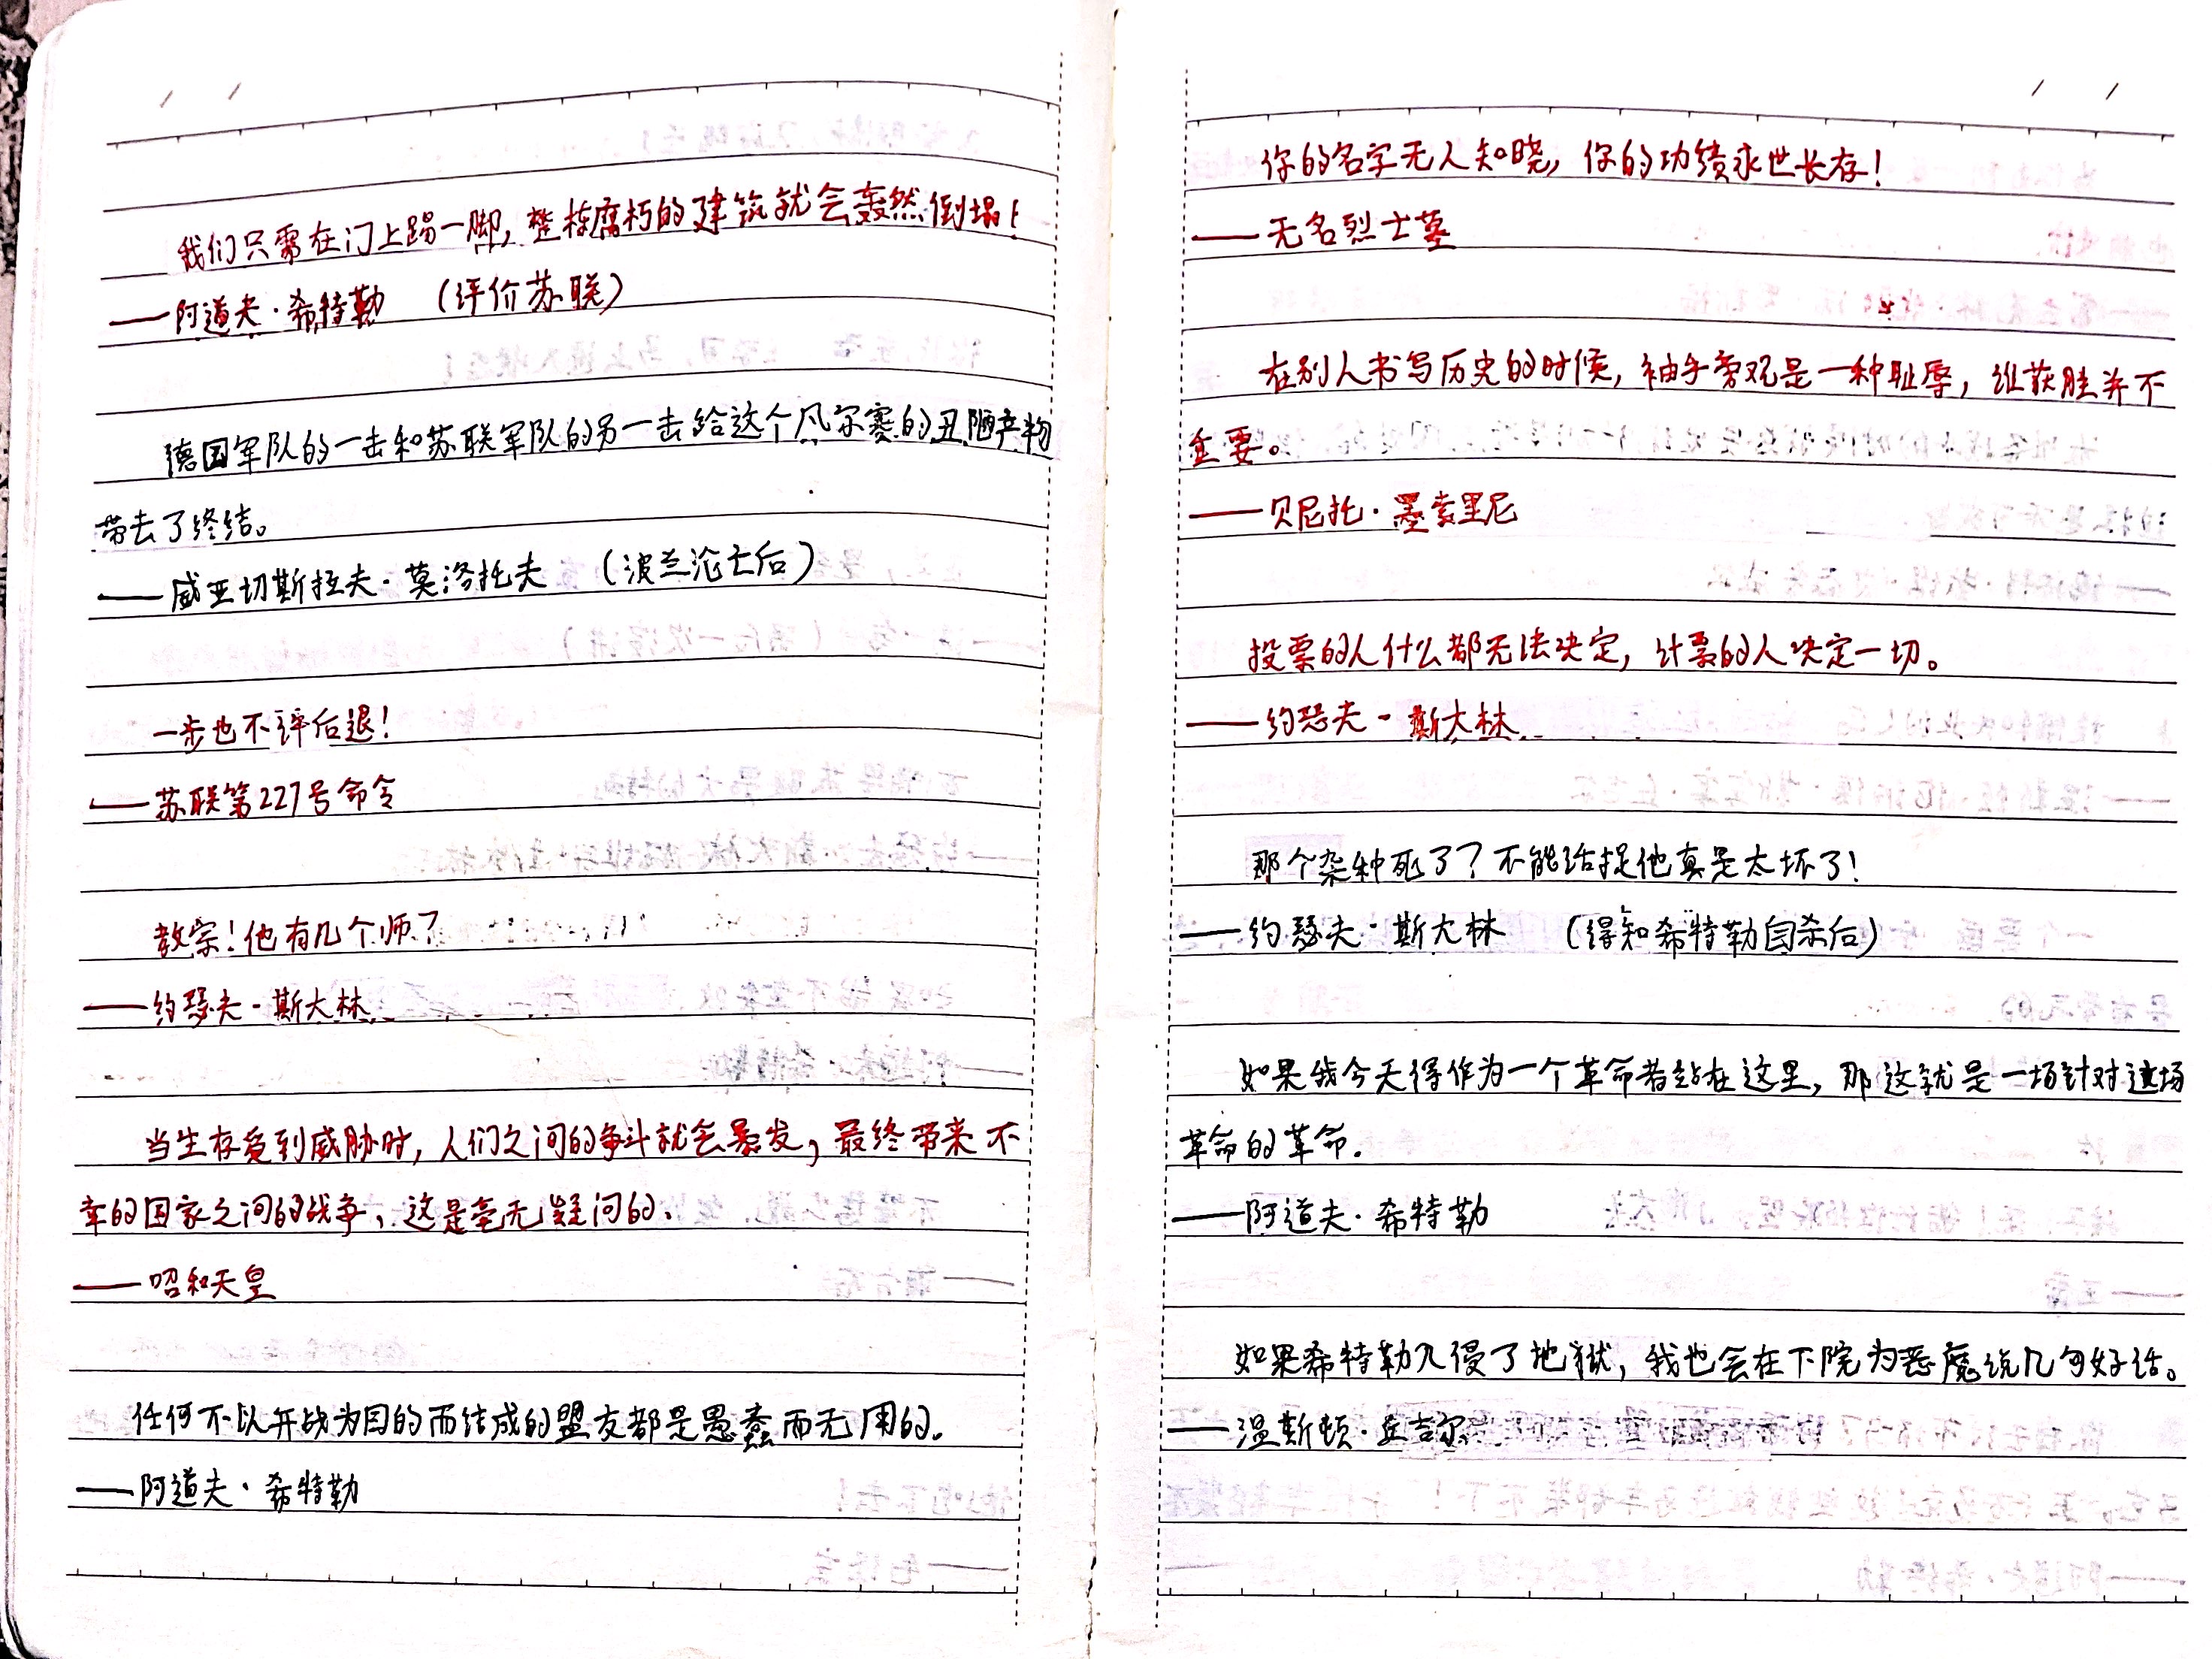 我们只需在门上踢一脚，整栋腐朽的建筑就会轰然倒塌！
——阿道夫·希特勒 （评价苏联）
德国军队的一击和苏联军队的另一击给这个凡尔赛的丑陋产物
带去了终结。
——威亚切斯拉夫·莫洛托夫 （波兰沦亡后）
一步也不许后退！
——苏联第227号命令
教宗！他有几个师？
——约瑟夫·斯大林
当生存受到威胁时，人们之间的争斗就会暴发，最终带来不
幸的国家之间的战争，这是毫无疑问的。
——昭和天皇
任何不以开战为目的而结成的盟友都是愚蠢而无用的。
——阿道夫·希特勒
你的名字无人知晓，你的功绩永世长存！
——无名烈士墓
在别人书写历史的时候，袖手旁观是一种耻辱，谁获胜并不
重要。
——贝尼托·墨索里尼
投票的人什么都无法决定，计票的人决定一切。
——约瑟夫·斯大林
那个杂种死了？不能活捉他真是太坏了！
——约瑟夫·斯大林 （得知希特勒自杀后）
如果我今天得作为一个革命者站在这里，那这就是一场针对这场
革命的革命.
——阿道夫·希特勒
如果希特勒入侵了地狱，我也会在下院为恶魔说几句好话。
——温斯顿·丘吉尔